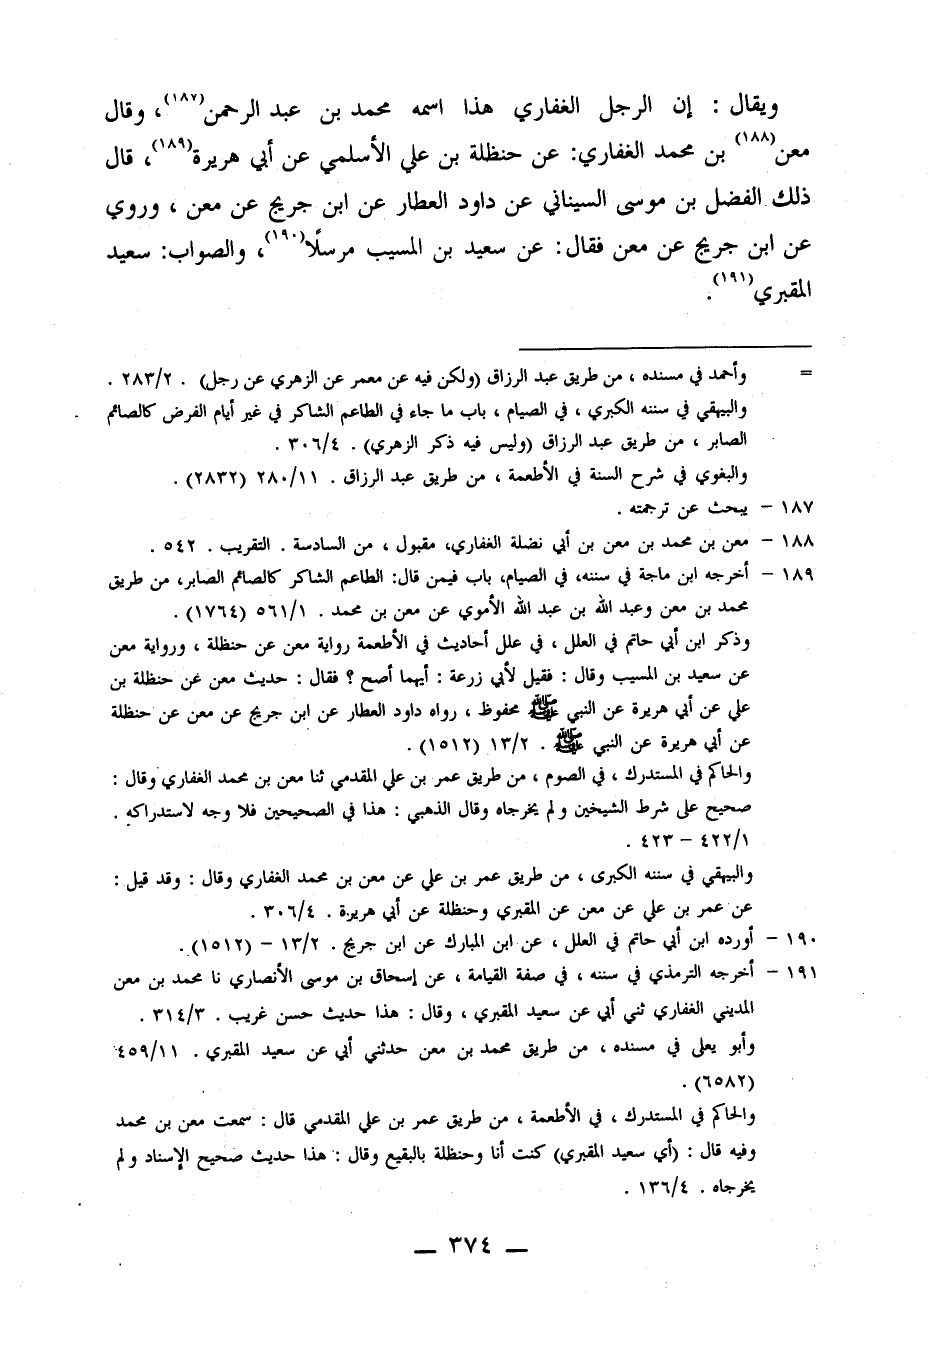 ويقال : إن الرجل الغفاري هذا اسمه محمد بن عبد الرحمن(١٨٧)، وقال
معن(١٨٨) بن محمد الغفاري: عن حنظلة بن علي الأسلمي عن أبي هريرة(١٨٩)، قال
ذلك الفضل بن موسى السيناني عن داود العطار عن ابن جريج عن معن ، وروي
عن ابن جريج عن معن فقال: عن سعيد بن المسيب مرسلًا(١٩٠)، والصواب: سعيد
المقبري(١٩١).
= وأحمد في مسنده ، من طريق عبد الرزاق (ولكن فيه عن معمر عن الزهري عن رجل) . ٢٨٣/٢ .
والبيهقي في سننه الكبري ، في الصيام ، باب ما جاء في الطاعم الشاكر في غير أيام الفرض كالصائم
الصابر ، من طريق عبد الرزاق (وليس فيه ذكر الزهري) . ٣٠٦/٤ .
والبغوي في شرح السنة في الأطعمة ، من طريق عبد الرزاق . ٢٨٠/١١ (٢٨٣٢) .
١٨٧ – يبحث عن ترجمته .
١٨٨ – معن بن محمد بن معن بن أبي نضلة الغفاري، مقبول ، من السادسة . التقريب . ٥٤٢ .
١٨٩ – أخرجه ابن ماجة في سننه، في الصيام، باب فيمن قال: الطاعم الشاكر كالصائم الصابر، من طريق
محمد بن معن وعبد الله بن عبد الله الأموي عن معن بن محمد . ٥٦١/١ (١٧٦٤) .
وذكر ابن أبي حاتم في العلل ، في علل أحاديث في الأطعمة رواية معن عن حنظلة ، ورواية معن
عن سعيد بن المسيب وقال : فقيل لأبي زرعة : أيهما أصح ؟ فقال : حديث معن عن حنظلة بن
علي عن أبي هريرة عن النبي ﷺ محفوظ ، رواه داود العطار عن ابن جريج عن معن عن حنظلة
عن أبي هريرة عن النبي ﷺ . ١٣/٢ (١٥١٢) .
والحاكم في المستدرك ، في الصوم ، من طريق عمر بن علي المقدمي ثنا معن بن محمد الغفاري وقال :
صحيح على شرط الشيخين ولم يخرجاه وقال الذهبي : هذا في الصحيحين فلا وجه لاستدراكه .
٤٢٢/١ – ٤٢٣ .
والبيهقي في سننه الكبرى ، من طريق عمر بن علي عن معن بن محمد الغفاري وقال : وقد قيل :
عن عمر بن علي عن معن عن المقبري وحنظلة عن أبي هريرة . ٣٠٦/٤ .
١٩٠ – أورده ابن أبي حاتم في العلل ، عن ابن المبارك عن ابن جريج . ١٣/٢ – (١٥١٢) .
١٩١ – أخرجه الترمذي في سننه ، في صفة القيامة ، عن إسحاق بن موسى الأنصاري نا محمد بن معن
المديني الغفاري ثني أبي عن سعيد المقبري ، وقال : هذا حديث حسن غريب . ٣١٤/٣ .
وأبو يعلى في مسنده ، من طريق محمد بن معن حدثني أبي عن سعيد المقبري . ٤٥٩/١١
(٦٥٨٢) .
والحاكم في المستدرك ، في الأطعمة ، من طريق عمر بن علي المقدمي قال : سمعت معن بن محمد
وفيه قال : (أي سعيد المقبري) كنت أنا وحنظلة بالبقيع وقال : هذا حديث صحيح الإسناد ولم
يخرجاه . ١٣٦/٤ .
– ٣٧٤ –